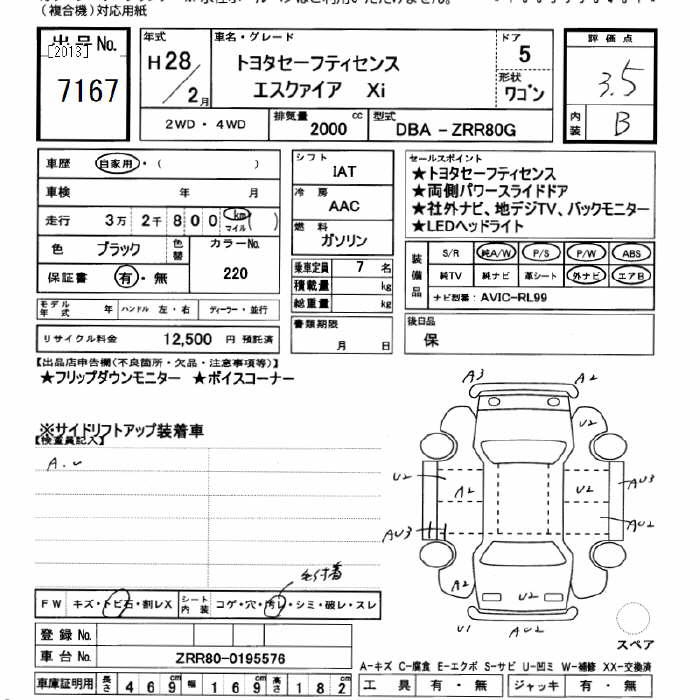 (複合機)対応用紙
出品No.
[2013]
7167
年式
H28/2月
車名・グレード
トヨタセーフティセンス
エスクァイア Xi
ドア
5
形状
ワゴン
評価点
3.5
内装
B
2WD・4WD
排気量
2000 cc
型式
DBA-ZRR80G
車歴 自家用・( )
車検 年 月
走行 3万2千800 km マイル ( )
色 ブラック 色替
カラーNo.
220
保証書 有・無
モデル年式 年 ハンドル 左・右 ディーラー・並行
リサイクル料金 12,500 円 預託済
シフト
IAT
冷房
AAC
燃料
ガソリン
乗車定員 7 名
積載量 kg
総重量 kg
書類期限
月 日
セールスポイント
★トヨタセーフティセンス
★両側パワースライドドア
★社外ナビ、地デジTV、バックモニター
★LEDヘッドライト
装備品
S/R 純A/W P/S P/W ABS
純TV 純ナビ 革シート 外ナビ エアB
ナビ型番: AVIC-RL99
後日品
保
【出品店申告欄(不良箇所・欠品・注意事項等)】
★フリップダウンモニター ★ボイスコーナー
※サイドリフトアップ装着車
【検査員記入】
A.U
A3 A2
U2
U2 A2 U2 AU3
AU3 AU2
A2 U2
U1 AU2
スペア
毛付着
FW キズ・トビ石・割レX シート内装 コゲ・穴・汚レ・シミ・破レ・スレ
登録No.
車台No. ZRR80-0195576
A-キズ C-腐食 E-エクボ S-サビ U-凹ミ W-補修 XX-交換済
車庫証明用 長さ 469cm 幅 169cm 高さ 182cm
工具 有・無 ジャッキ 有・無